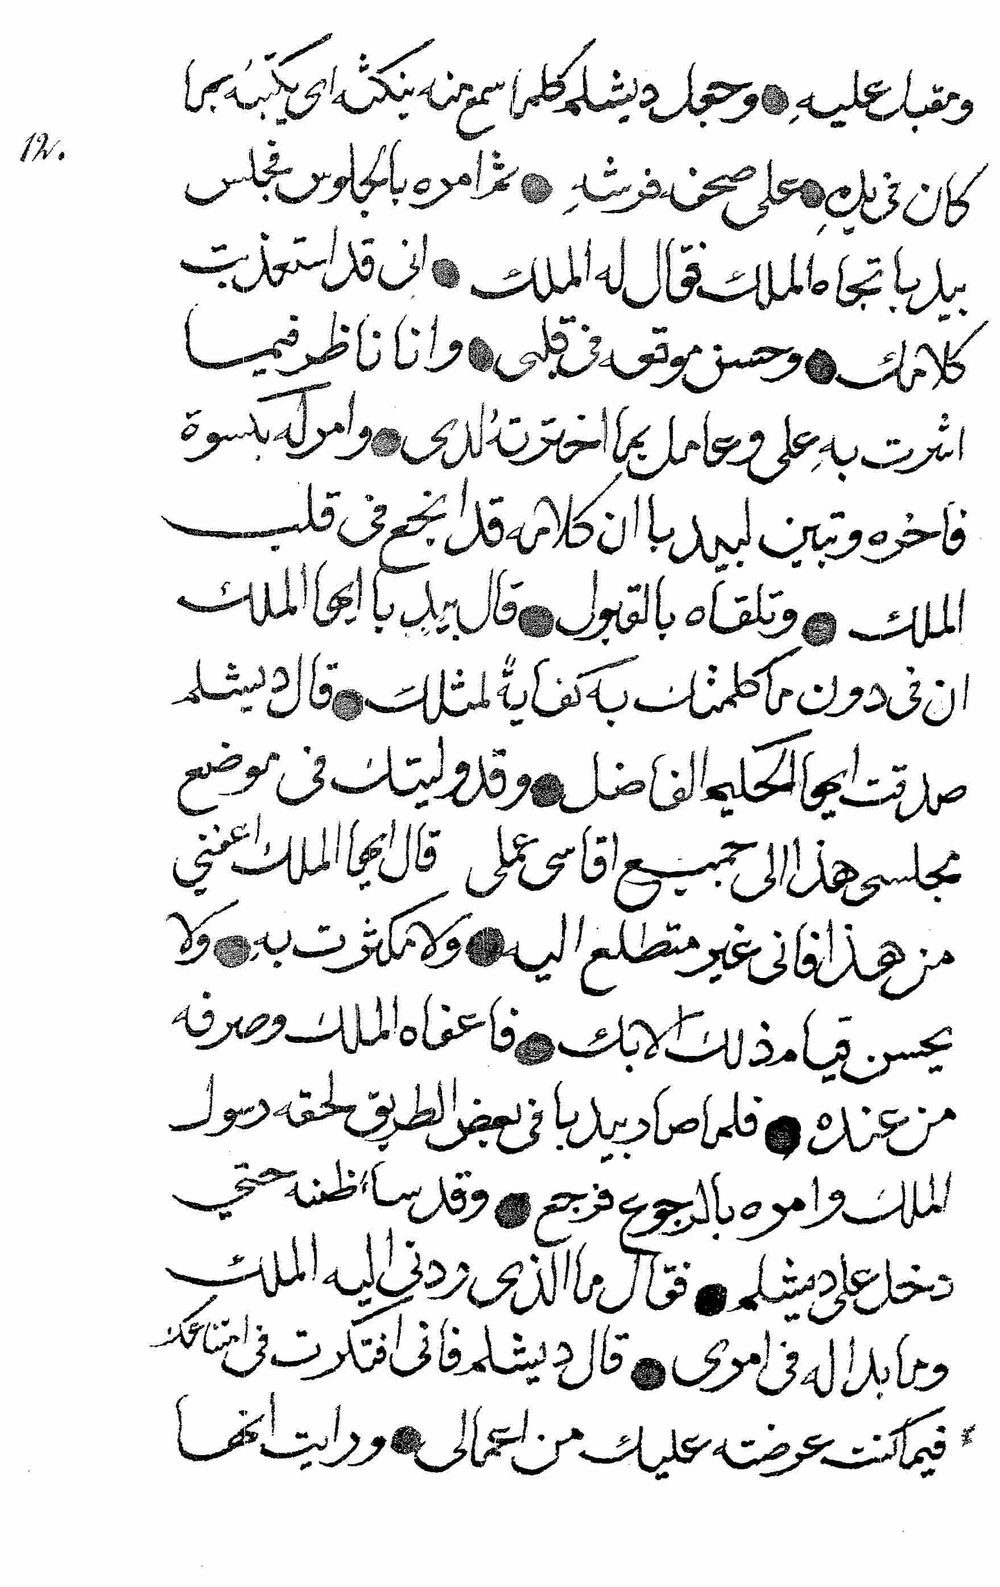 ومقبل عليهِ ● وجعل ديشلم كلما سمع منه ينكثه اى يكتبُه بما
12v.
كان فى يدِهِ ● على صحف فرشهِ ● ثم امره بالجلوس فجلس
بيدبا تجاه الملك فقال له الملك ● انى قد استعذبت
كلامك ● وحسن موقعه فى قلبى ● وانا ناظر فيما
اشرت بهِ على وعامل بما اخترتهُ لدى ● وامر له بكسوة
فاخره وتبين لبيدبا ان كلامه قد انجع فى قلب
الملك ● وتلقاه بالقبول ● قال بيدبا ايها الملك
ان فى دون ما كلمتك به كفايةً لمثلك ● قال ديشلم
صدقت ايها الحكيم الفاضل ● وقد وليتك فى موضع
مجلسى هذا الى جميع اقاسى عملى قال ايها الملك اعفنى
من هذا فانى غير متطلع اليه ● ولا مكثرت بهِ ● ولا
يحسن قيام ذلك الا بك ● فاعفاه الملك وصرفه
من عنده ● فلما صار بيدبا فى بعض الطريق لحقه رسول
الملك وامره بالرجوع فرجع ● وقد ساء ظنه حتي
دخل على ديشلم ● فقال ما الذى ردنى اليه الملك
وما بدا له فى امرى ● قال ديشلم فانى افتكرت فى امتناعك
فيما كنت عرضته عليك من اعمالى ● ورايت انها